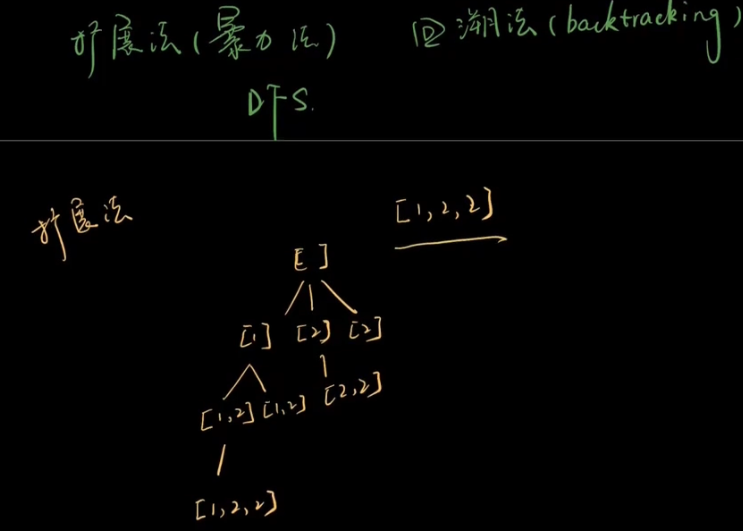 扩展法(暴力法) 回溯法(backtracking)
DFS.
扩展法 [1,2,2]
[]
[1] [2] [2]
[1,2] [1,2] [2,2]
[1,2,2]